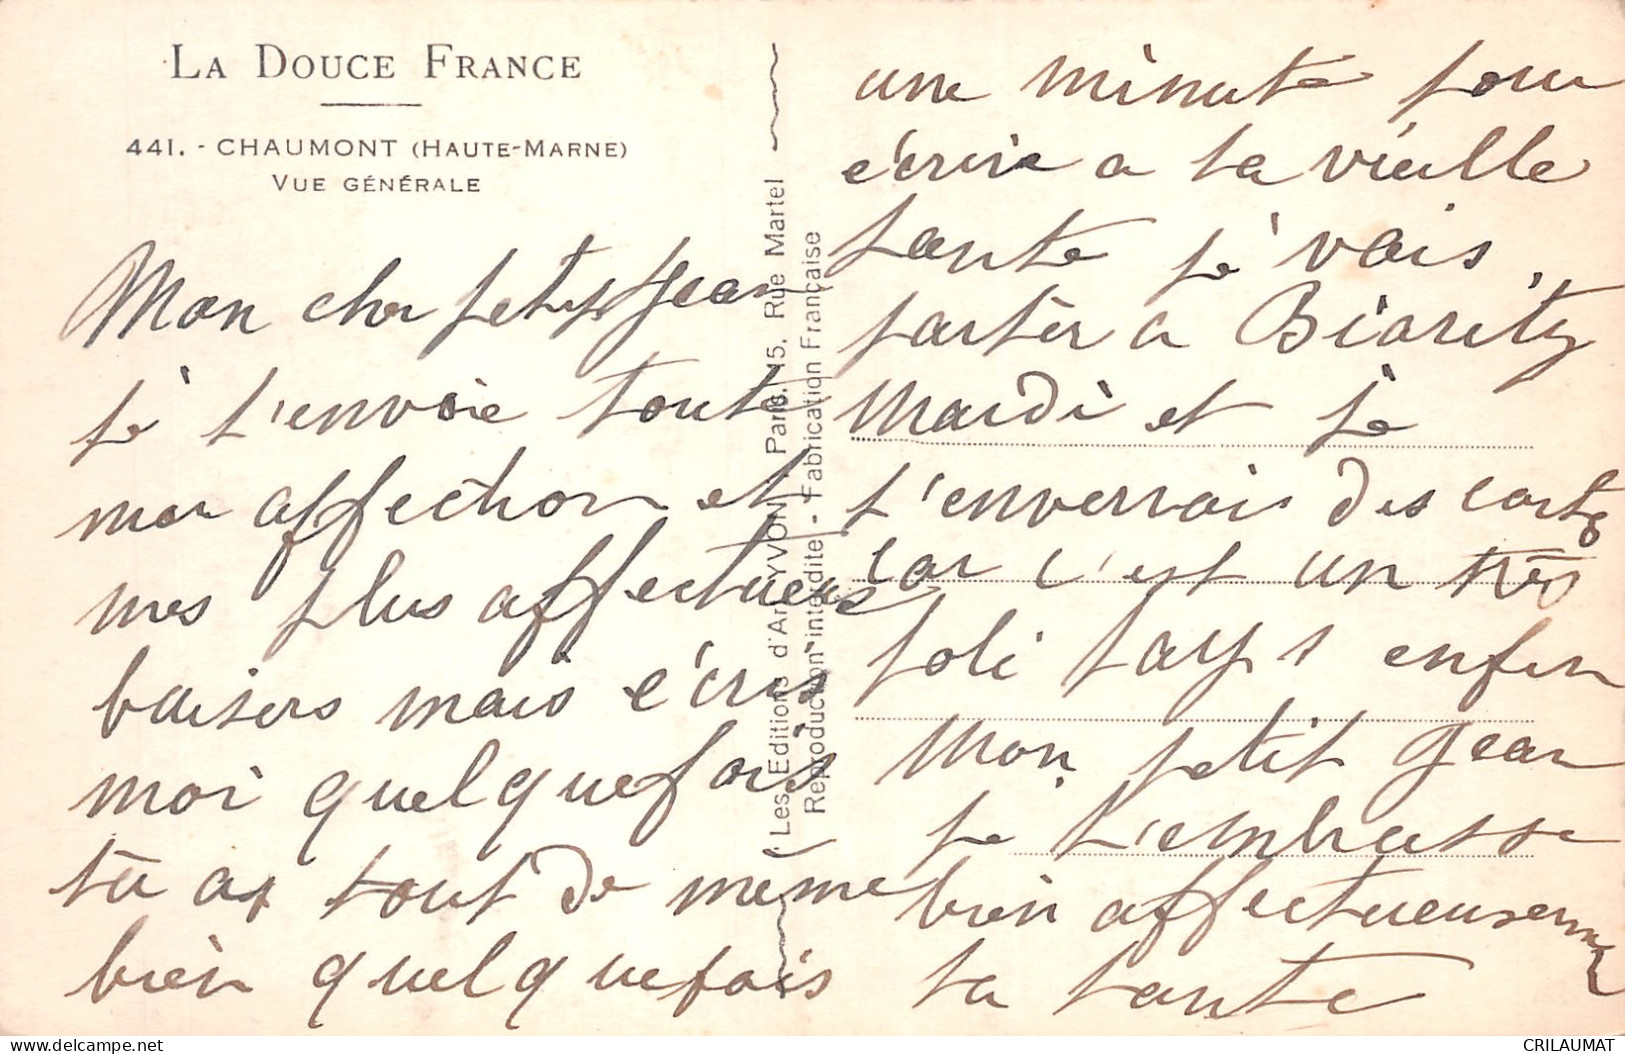 LA DOUCE FRANCE
441. - CHAUMONT (HAUTE-MARNE)
VUE GÉNÉRALE
Mon cher petit Jean
je t'envoie toute
ma affection et
mes plus affectueus
baisers mais écris
moi quelquefois
tu as tout de même
bien quelquefois
Les Editions d'Art YVON, Paris. 15, Rue Martel
Reproduction interdite - Fabrication Française
une minute pour
écrire a ta vieille
tante je vais
partir a Biaritz
Mardi et je
t'enverrais des carte
car c'est un très
joli pays enfin
Mon petit Jean
je t'embrasse
bien affectueusement
ta tante
CRILAUMAT